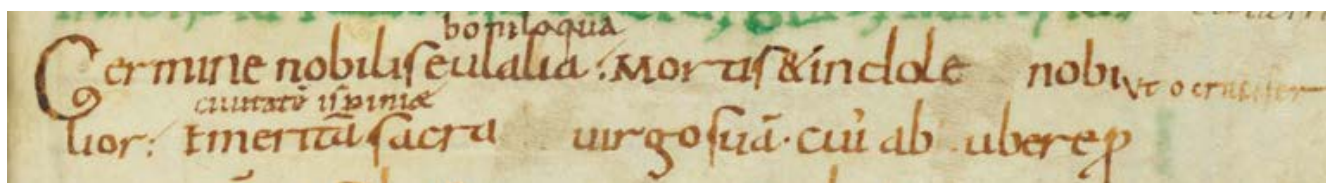 boniloqua
Germine nobilis eulalia. Mortis & indole nobi
ciuitatē ispaniæ
lior: Emeritā sacra uirgo suā. cui ab ubere ꝓ